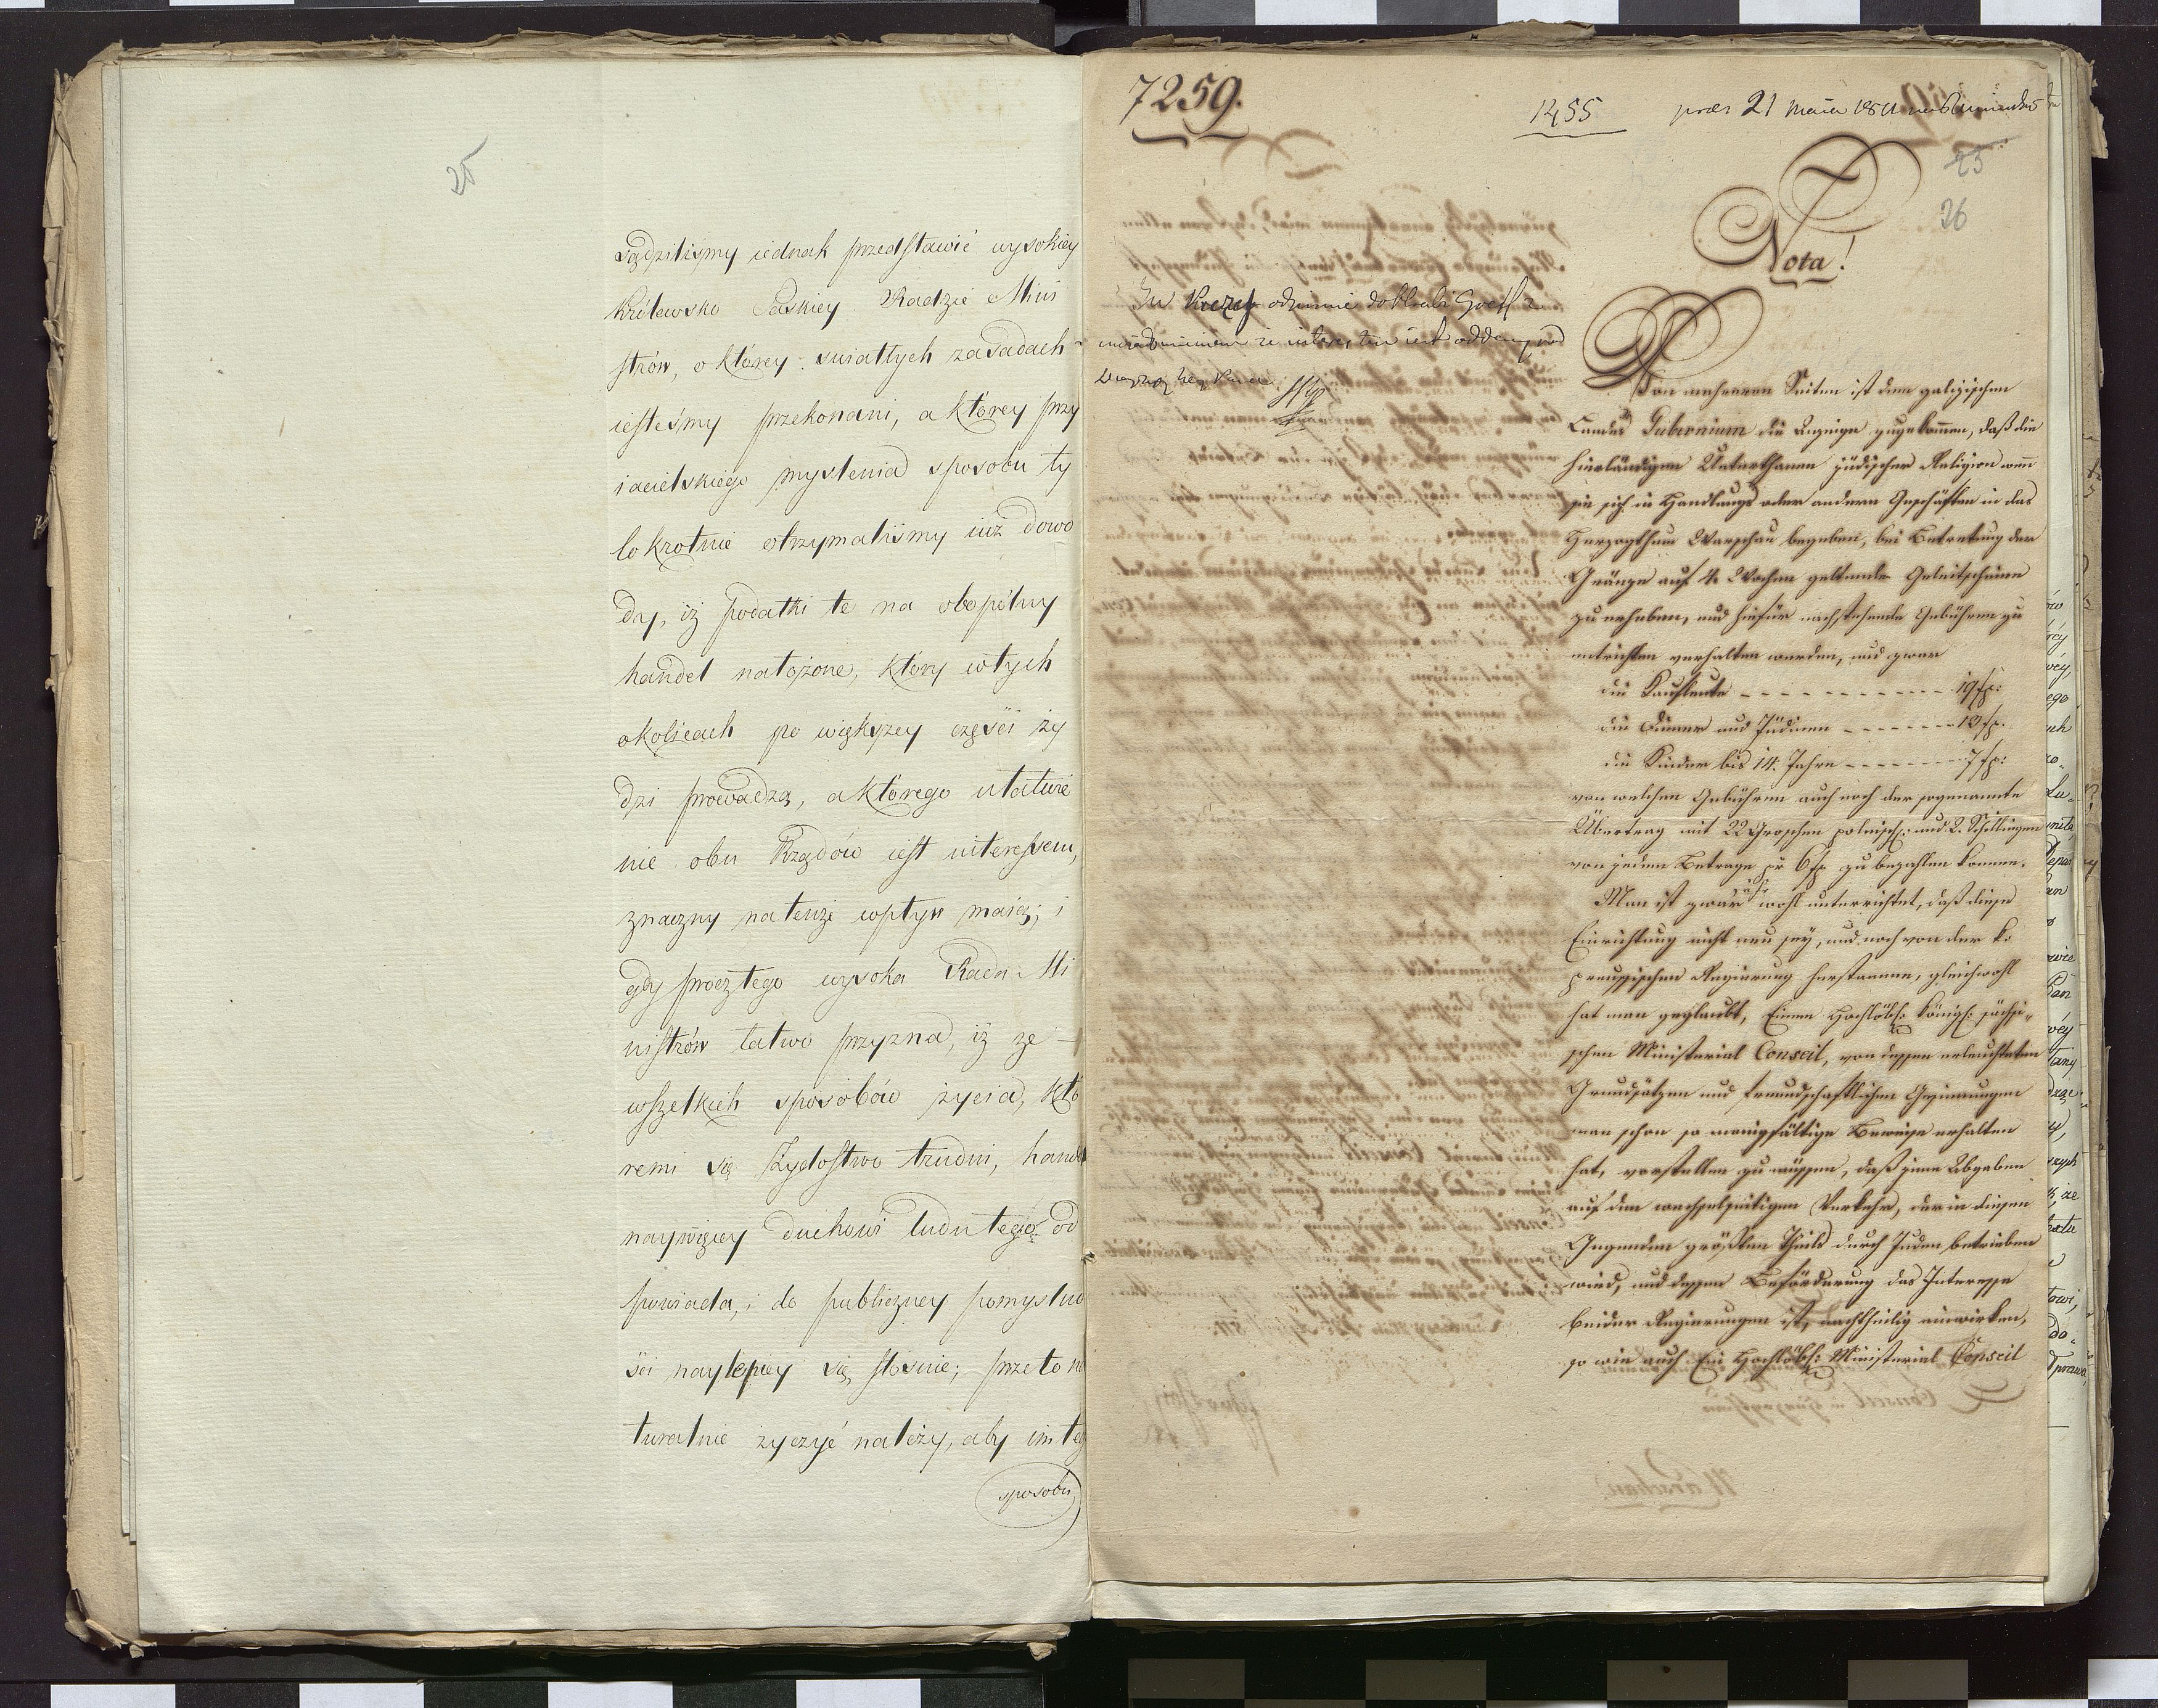 25
sądziliśmy iednak przedstawić wysokiey
Królewsko Saskiey Radzie Mini
strów, o którey swiatłych zasadach
iesteśmy przekonani, a którey przy
iacielskiego myslenia sposobu ty
lokrotnie otrzymaliśmy iuz dowo
dy, iż podatki te na obopólny
handel nałożone, który w tych
okolicach po większey części ży
dzi prowadzą, a którego ułatwie
nie obu Rządów iest interessem,
znaczny na tenże wpływ maią; i
gdy prócz tego wysoka Rada Mi
nistrów łatwo przyzna, iż ze
wszelkich sposobów życia, któ
remi się Żydostwo trudni, handel
naywięcey duchowi ludu tego od
powiada, i do publiczney pomyslno
ści naylepiey się stosuie; przeto na
turalnie życzyć należy, aby im teg
sposobu
7259.
1455
praes 21 Maia 1811
25
26
Nota!
odzianie do Hrabi Goëss z
uwiadomieniem ze interes ten iest oddany pod
Von mehreren Seiten ist dem galizischen
Landes Gubernium die Anzeige zugekommen, daß die
hierländigen Unterthanen jüdischer Religion wenn
sie sich in Handlungs oder andern Geschäften in das
Herzogthum Warschau begeben, bei Betretung der
Gränze auf 4 Wochen geltende Geleitscheine
zu erheben, und hiefür nachstehende Gebühren zu
entrichten verhalten werden, und zwar
die Kaufleute - - - - - - - - - - - 19 fp:
die Diener und Jüdinen - - - - - - - 13 fp.
die Kinder bis 14. Jahre - - - - - - - 7 fp:
von welchen Gebühren auch noch der sogenannte
Übertrag mit 22 Groschen polnisch: und 2. Schillingen
von jedem Betrage pr 6 fp zu bezahlen komme.
Man ist zwar wohl unterrichtet, daß diese
Einrichtung nicht neu sey, und noch von der k.
preussischen Regierung herstamme, gleichwohl
hat man geglaubt, Einem Hochlöbl: königl: sächsi-
schen Ministerial Conseil, von dessen erleuchteten
Grundsätzen und freundschaftlichen Gesinnungen
man schon so manigfältige Beweise erhalten
hat, vorstellen zu müssen, daß jene Abgaben
auf den wechselseitigen Verkehr, der in diesen
Gegenden größten Theils durch Juden betrieben
wird, und dessen Beförderung das Interesse
beider Regierungen ist, nachtheilig einwirken,
so wie auch Ein Hochlöbl: Ministerial Conseil